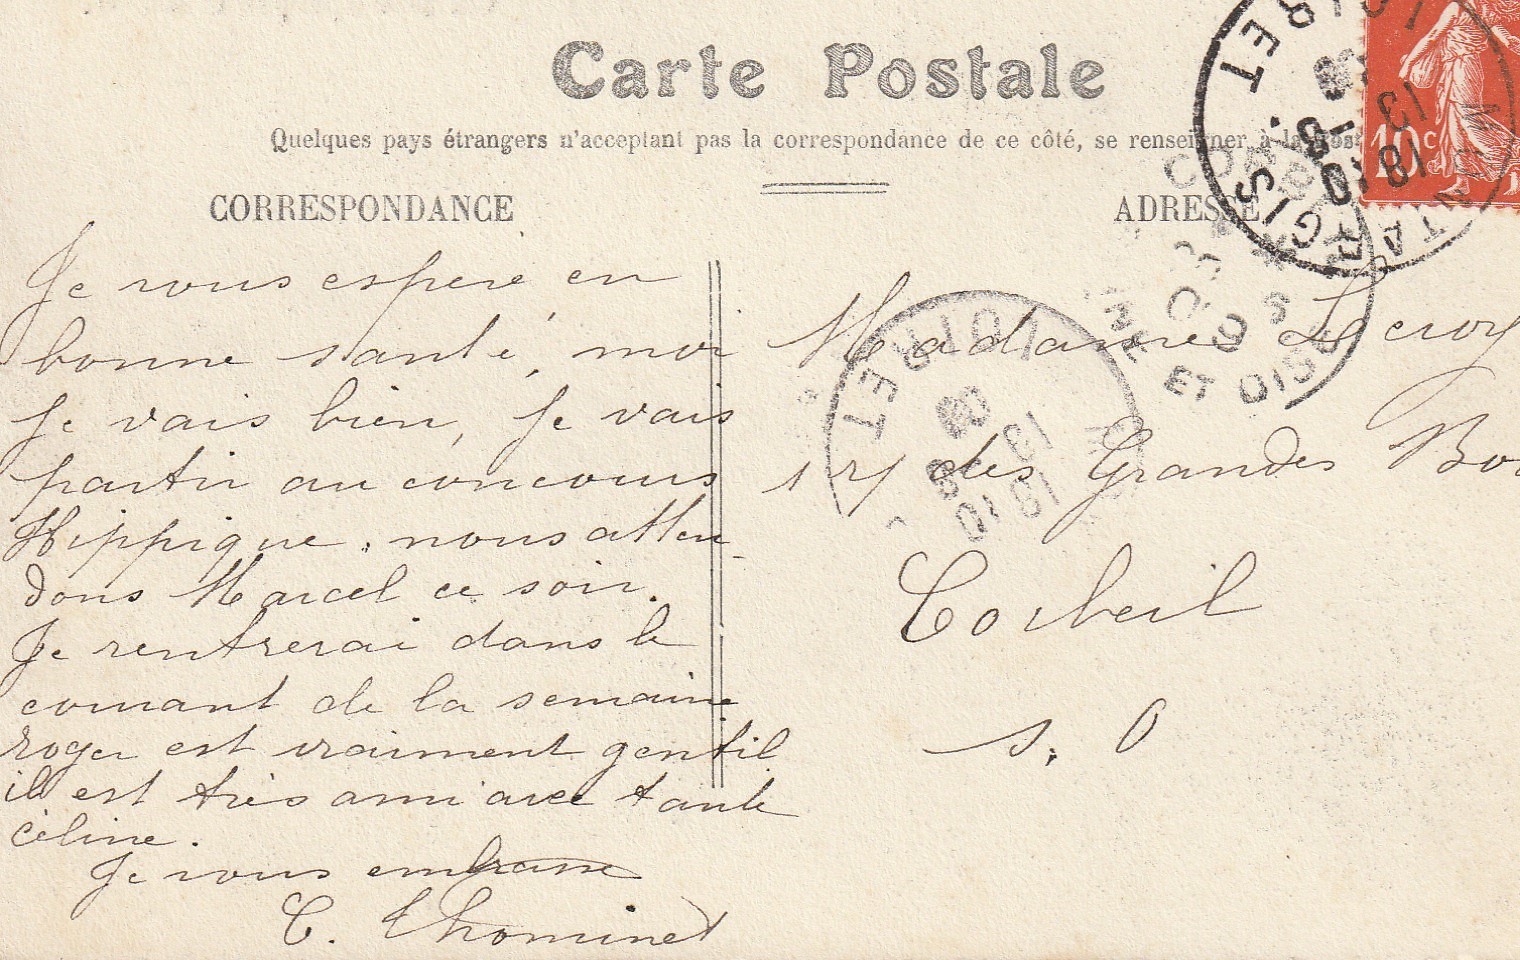 Carte Postale
Quelques pays étrangers n'acceptant pas la correspondance de ce côté, se renseigner à la
CORRESPONDANCE
ADRESSE
Je vous espère en
bonne santé, moi
je vais bien, je vais
partir au concours
Hippique. nous atten
dons Marcel ce soir.
Je rentrerai dans le
courant de la semaine
roger est vraiment gentil
il est très ami avec tante
céline.
Je vous embrasse
C. Thominet
Madame Lecroy
des Grandes
Corbeil
S. O
10c
MONTARGIS
LOIRET
13
18 10
ET OISE
LOIRET
13
18 10